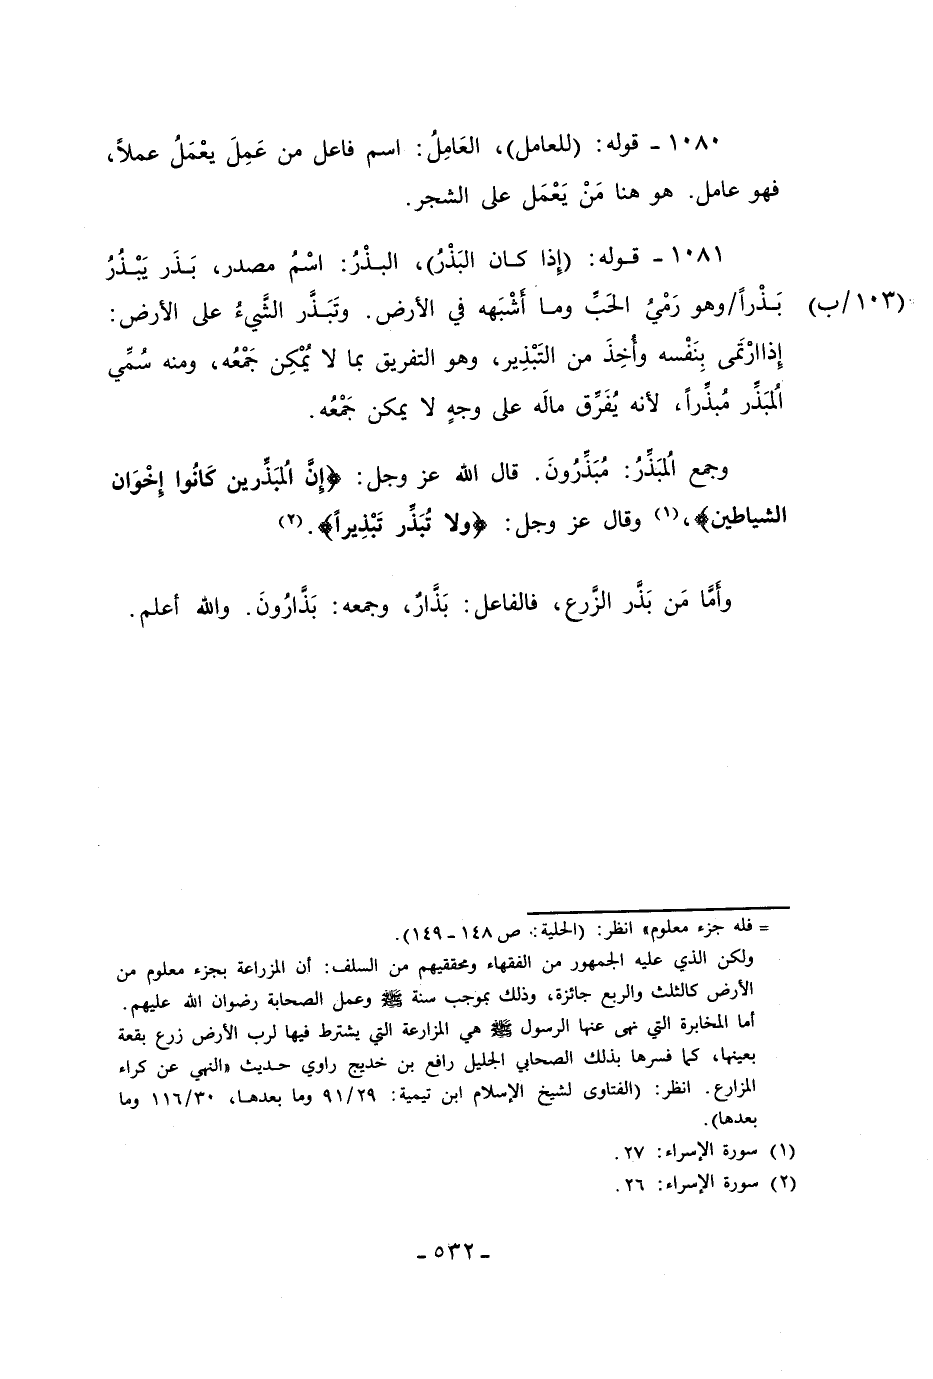 ١٠٨٠ - قوله: (للعامل)، العَامِلُ: اسم فاعل من عَمِلَ يعْمَلُ عملاً،
فهو عامل. هو هنا مَنْ يَعْمَل على الشجر.
١٠٨١ - قوله: (إِذا كان البَذْرُ)، البذْرُ: اسْمُ مصدر، بَذَر يَبْذُرُ
(١٠٣/ب) بَذْراً/وهو رَمْيُ الحَبِّ وما أَشْبَهه في الأرض. وتَبَذَّر الشَّيءُ على الأرض:
إِذا ارْتَمى بِنَفْسه وأُخِذَ من التَبْذِير، وهو التفريق بما لا يُمْكِن جَمْعُه، ومنه سُمِّي
الُمبَذِّر مُبذِّراً، لأنه يُفَرِّق مالَه على وجهٍ لا يمكن جَمْعُه.
وجمع الُمبَذِّرُ: مُبَذِّرُونَ. قال الله عز وجل: ﴿إِنَّ الُمبَذِّرين كَانُوا إِخْوَان
الشياطين﴾،(١) وقال عز وجل: ﴿ولا تُبَذِّر تَبْذِيراً﴾.(٢)
وأَمَّا مَن بَذَّر الزَّرع، فالفاعل: بَذَّارٌ، وجمعه: بَذَّارُونَ. والله أعلم.
= فله جزء معلوم» انظر: (الحلية: ص ١٤٨ - ١٤٩).
ولكن الذي عليه الجمهور من الفقهاء ومحققيهم من السلف: أن المزراعة بجزء معلوم من
الأرض كالثلث والربع جائزة، وذلك بموجب سنة ﷺ وعمل الصحابة رضوان الله عليهم.
أما المخابرة التي نهى عنها الرسول ﷺ هي المزارعة التي يشترط فيها لرب الأرض زرع بقعة
بعينها، كما فسرها بذلك الصحابي الجليل رافع بن خديج راوي حديث «النهي عن كراء
المزارع. انظر: (الفتاوى لشيخ الإسلام ابن تيمية: ٩١/٢٩ وما بعدها، ١١٦/٣٠ وما
بعدها).
(١) سورة الإسراء: ٢٧.
(٢) سورة الإسراء: ٢٦.
- ٥٣٢ -